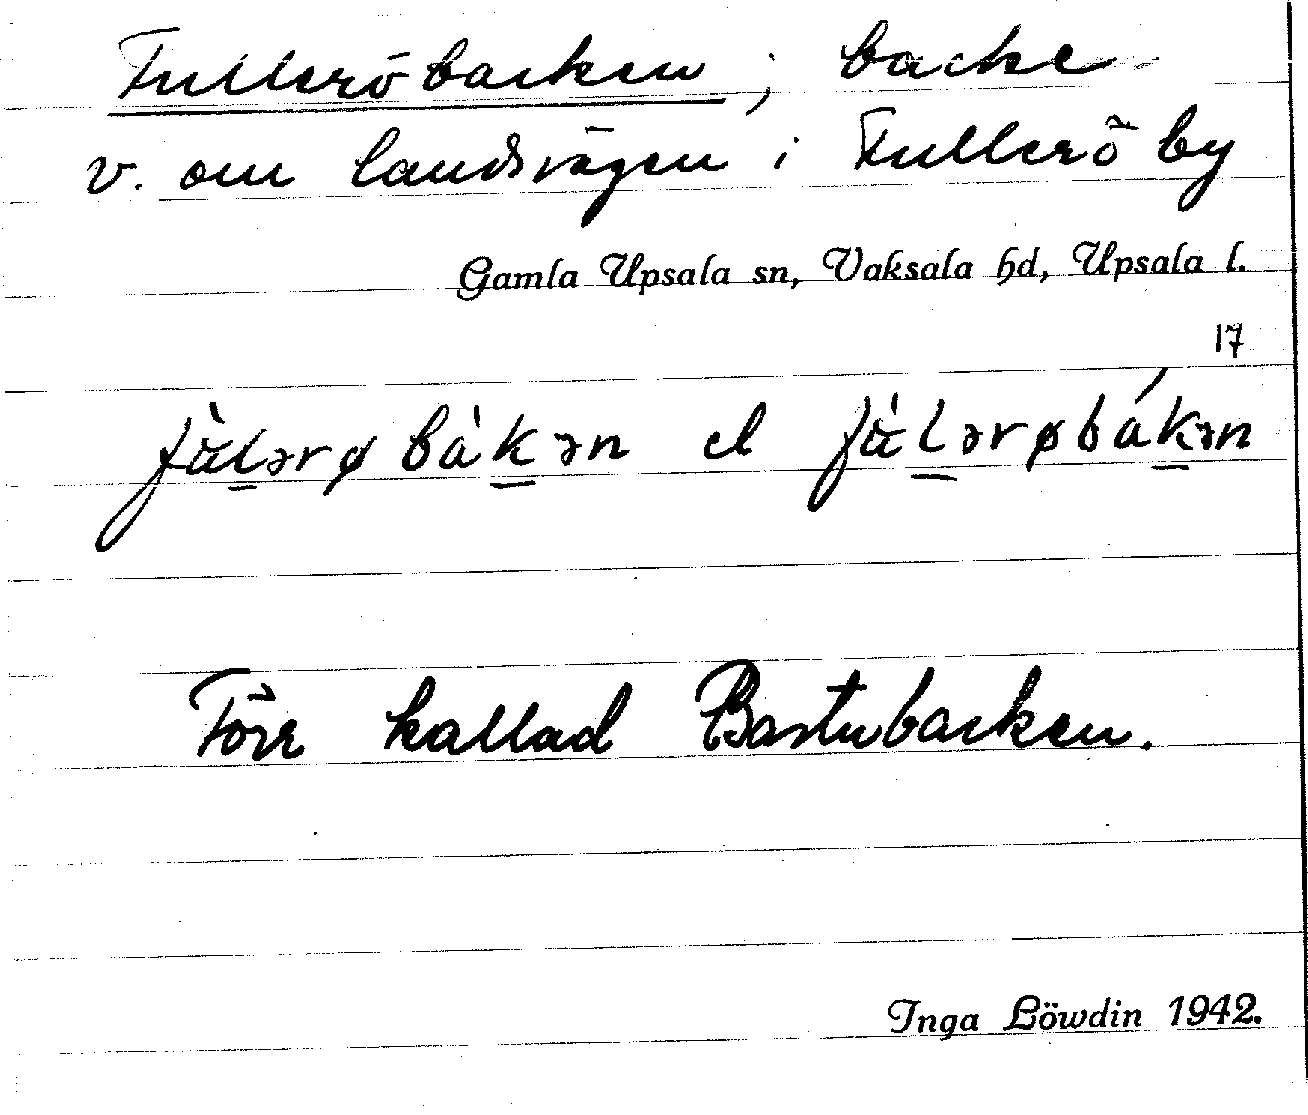 Fullerö backen ; backe
v. om landsvägen i Fullerö by
Gamla Upsala sn, Vaksala hd, Upsala l.
17
fȧ̀lərø bàkən el fȧ̀lərøbákən
Förr kallad Bastubacken.
Inga Löwdin 1942.